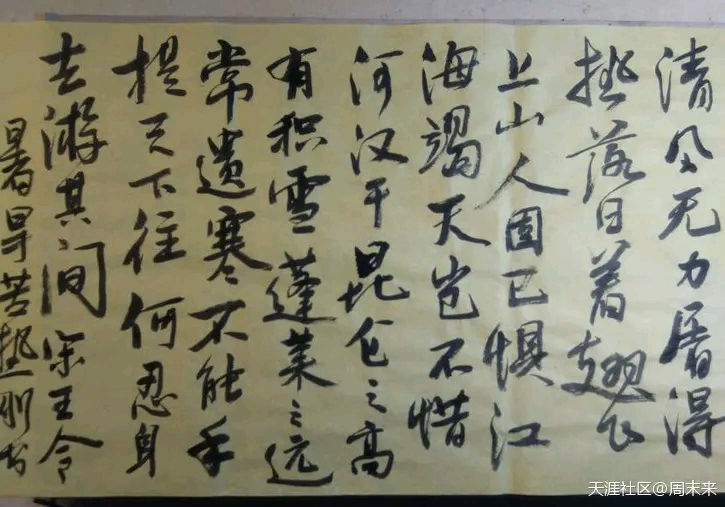 清风无力屠得
热落日着翅飞
上山人固已惧江
海竭天岂不惜
河汉干昆仑之高
有积雪蓬莱之远
常遗寒不能手
提天下往何忍身
去游其间宋王令
暑旱苦热书
天涯社区@周末来